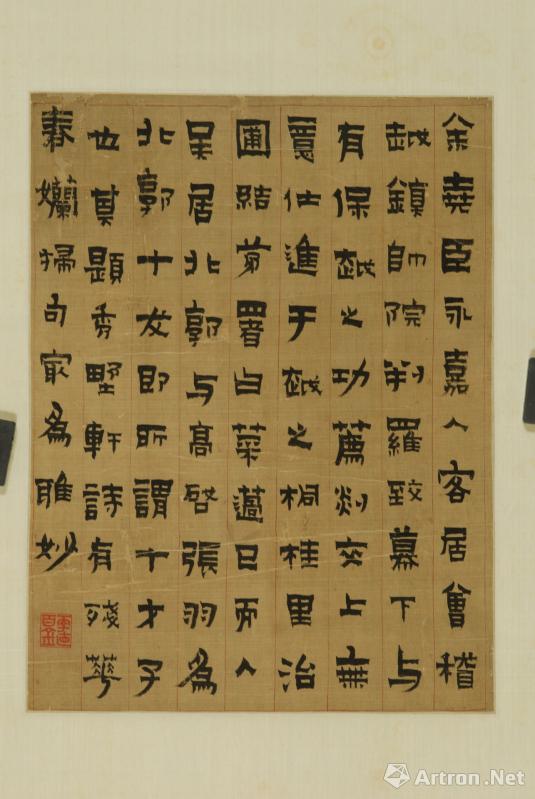 余堯臣永嘉人客居會稽
越鎮帥院判羅致幕下与
有保越之功薦剡交上無
意仕進于越之桐桂里治
圃結茅署曰菜薖已而入
吴居北郭与高啓張羽為
北郭十友即所謂十才子
也其題秀野軒詩有殘華
春孏掃句冣為雅妙
Artron.Net